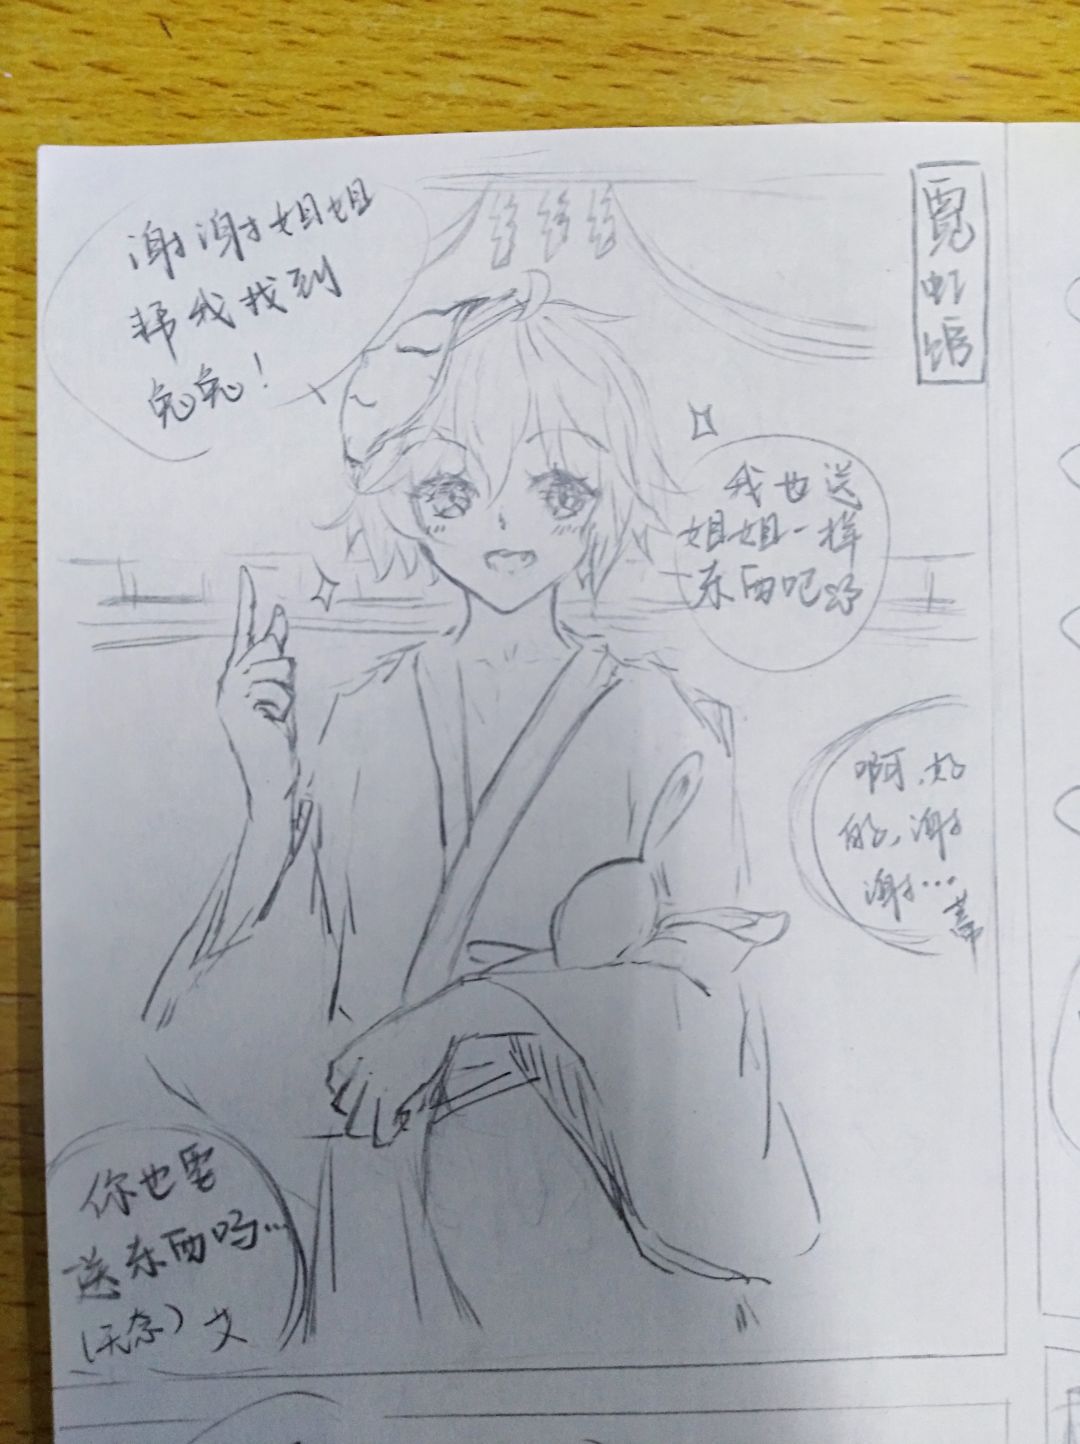 谢谢姐姐
帮我找到
兔兔！
霓虹馆
我也送
姐姐一样
东西吧
啊，好
的，谢
谢…
你也要
送东西吗…
（无奈）艾